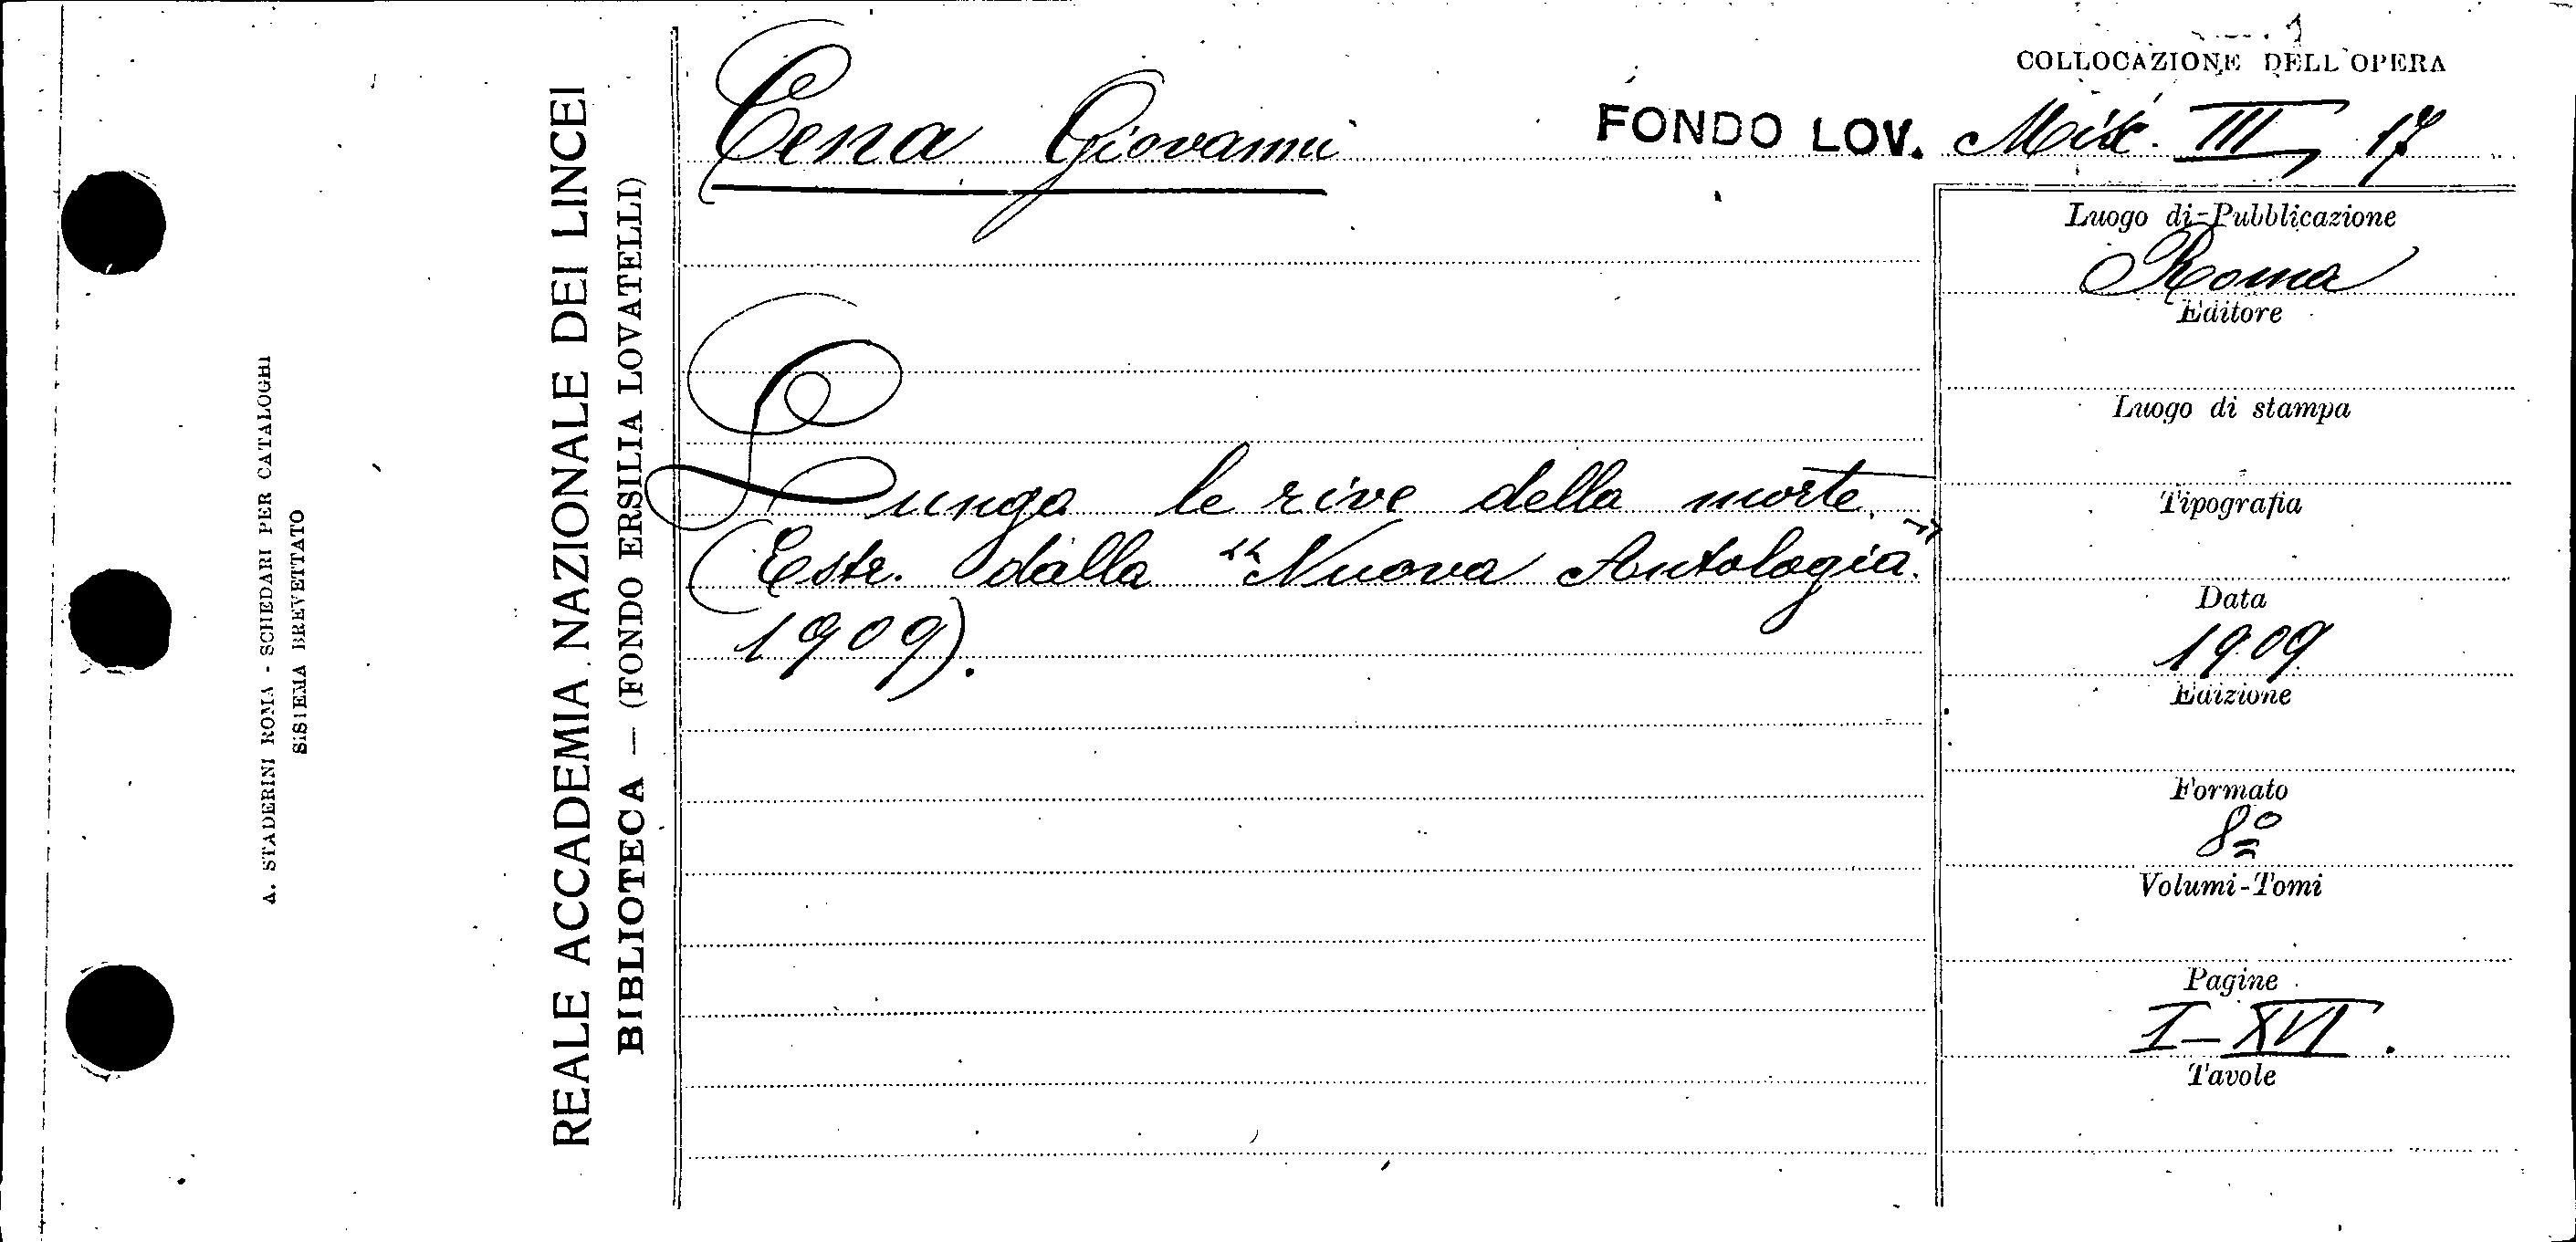 A. STADERINI ROMA - SCHEDARI PER CATALOGHI
SISTEMA BREVETTATO
REALE ACCADEMIA NAZIONALE DEI LINCEI
BIBLIOTECA — (FONDO ERSILIA LOVATELLI)
COLLOCAZIONE DELL'OPERA
Cena Giovanni
FONDO LOV. Misc. III, 17
Lungo le rive della morte.
(Estr. dalla "Nuova Antologia"
1909).
Luogo di Pubblicazione
Roma
Editore
Luogo di stampa
Tipografia
Data
1909
Edizione
Formato
8º
Volumi-Tomi
Pagine
I-XVI.
Tavole